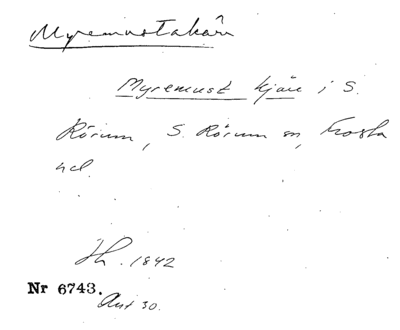 Myremustakärr
Myremust kjärr i S.
Rörum, S. Rörum sn, Frosta
hd.
Jh. 1842
Nr 6743.
Ant 30.